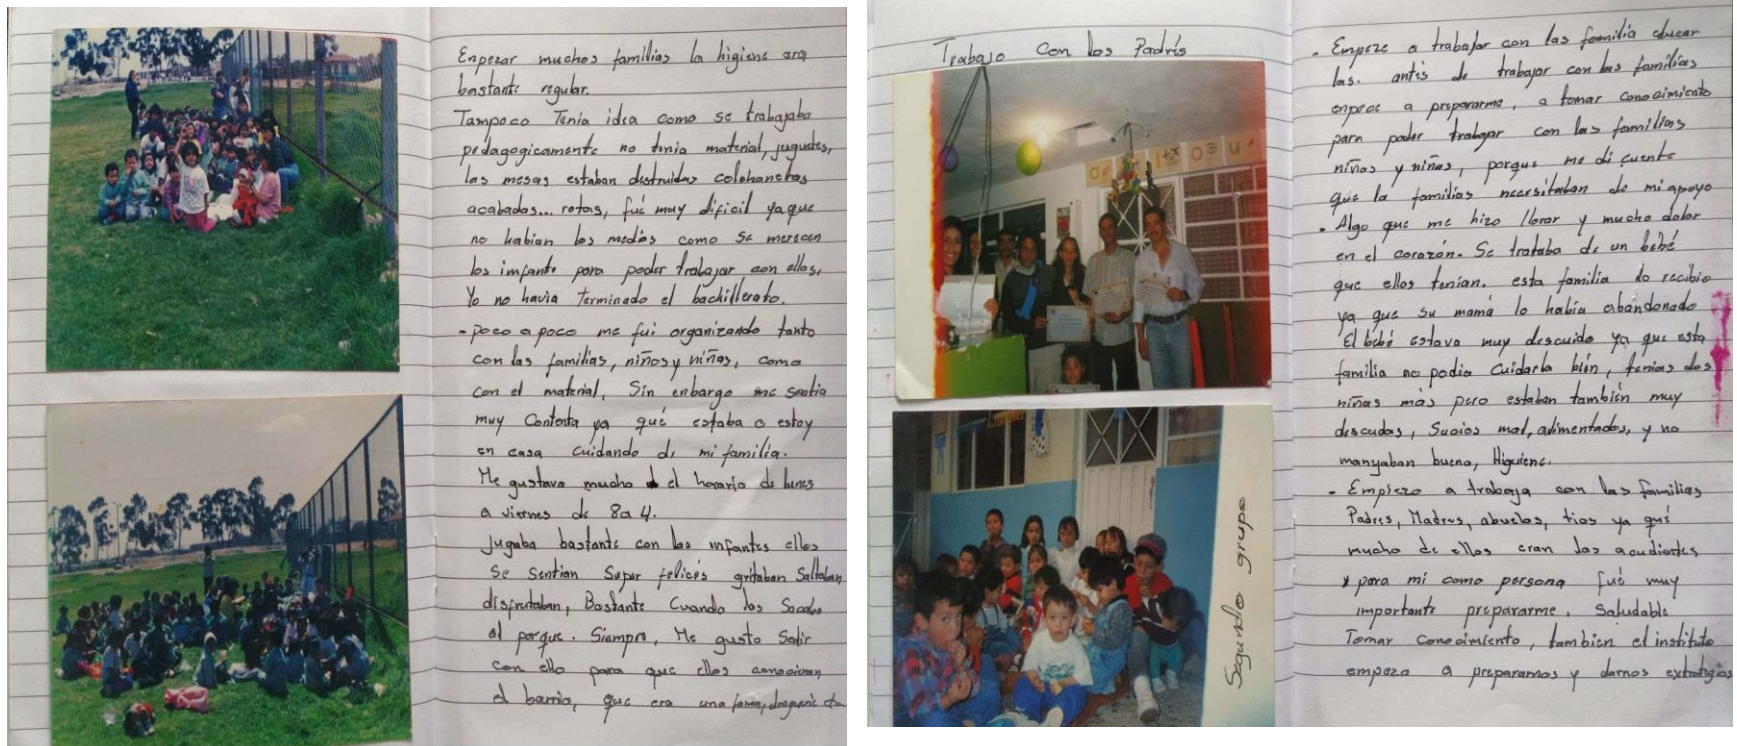 Enpezar muchos familias la higiene era
bastante regular.
Tampoco Tenia idea como se trabajaba
pedagogicamente no tenia material, juguetes,
las mesas estaban destruidas colchonetas
acabadas... rotas, fué muy dificil ya que
no habian los medios como se merecen
los imfante para poder trabajar con ellos,
Yo no havia terminado el bachillerato.
- poco a poco me fui organizando tanto
con las familias, niños y niñas, como
con el material, Sin enbargo me sentia
muy Contenta ya qué estaba o estoy
en casa cuidando de mi familia.
Me gustava mucho el horario de lunes
a viernes de 8a4.
jugaba bastante con los infantes ellos
se sentian Super felices gritaban saltaban
disfrutaban, Bastante Cuando los Sacaba
al parque. Siempre, Me gusto Salir
con ello para que ellos conocieran
el barrio, que era una
Trabajo Con los Padrés
- Empeze a trabajar con las familia educar
las. antés de trabajar con las familias
enpece a prepararme, a tomar conocimiento
para poder trabajar con las familias
niños y niñas, porque me di cuenta
que la familias necesitaban de mi apoyo
- Algo que me hizo llorar y mucho dolor
en el corazón. Se trataba de un bebé
que ellos tenian. esta familia lo recibio
ya que su mamá lo había abandonado
El bebé estava muy descuido ya que esta
familia no podia cuidarla bién, tenias dos
niñas más pero estaban también muy
descudas, Sucios mal, alimentados, y no
manyaban buena, Higuiene.
- Empiezo a trabaja con las familias
Padres, Madres, abuelos, tios ya qué
mucho de ellos eran las acudientes
para mi como persona fué muy
importante prepararme. Saludable
Tomar conocimiento, tambien el instituto
empezo a prepararnos y darnos extrategias
Segundo grupo